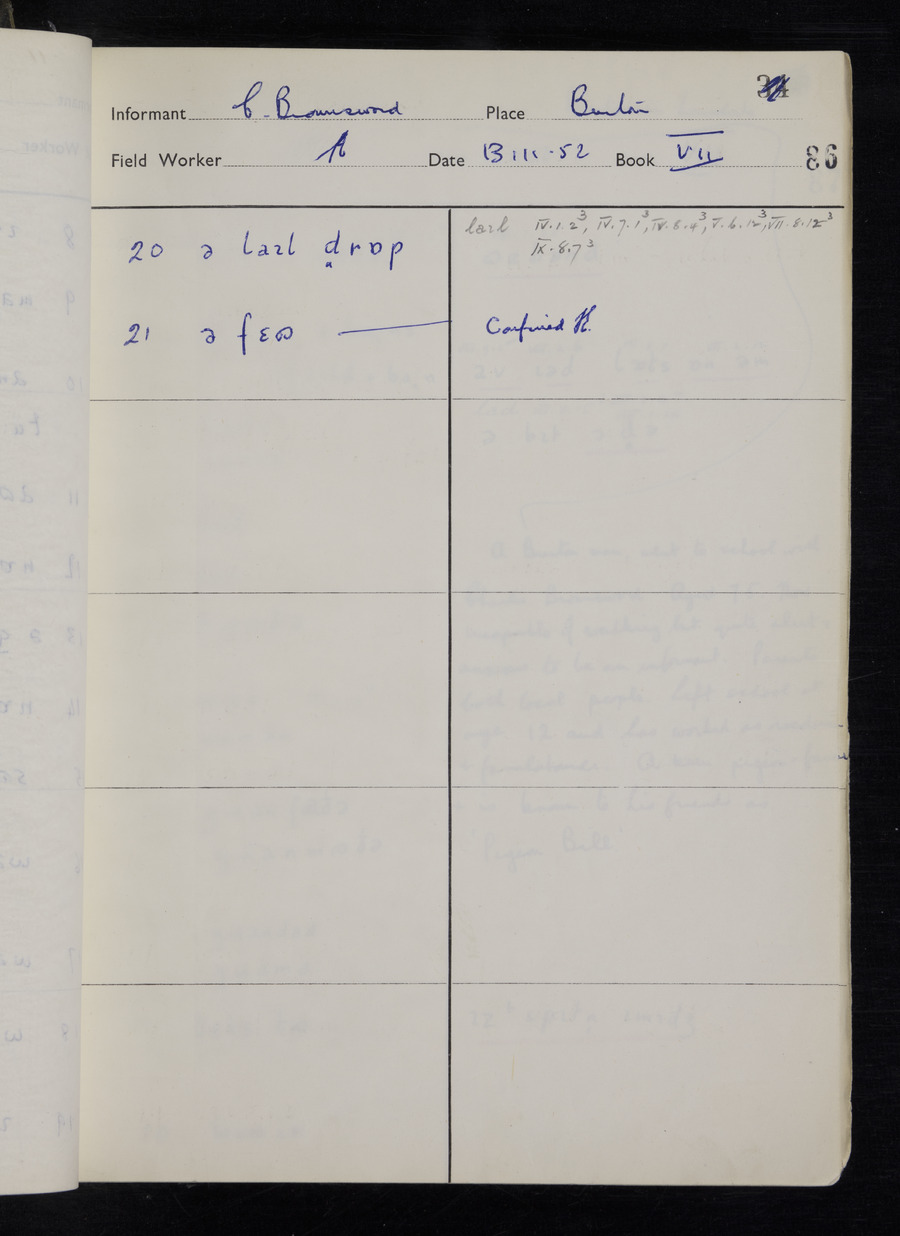 Informant C. Brownsword Place Burton
Field Worker A Date 13.iii.52 Book VII 86
20 ə laɪl d̪rɒp
laɪl IV.1.2³, IV.7.1³, IV.8.4³, V.6.12³, VII.8.12³
IX.8.7³
21 ə fɛʊ Confirmed H.